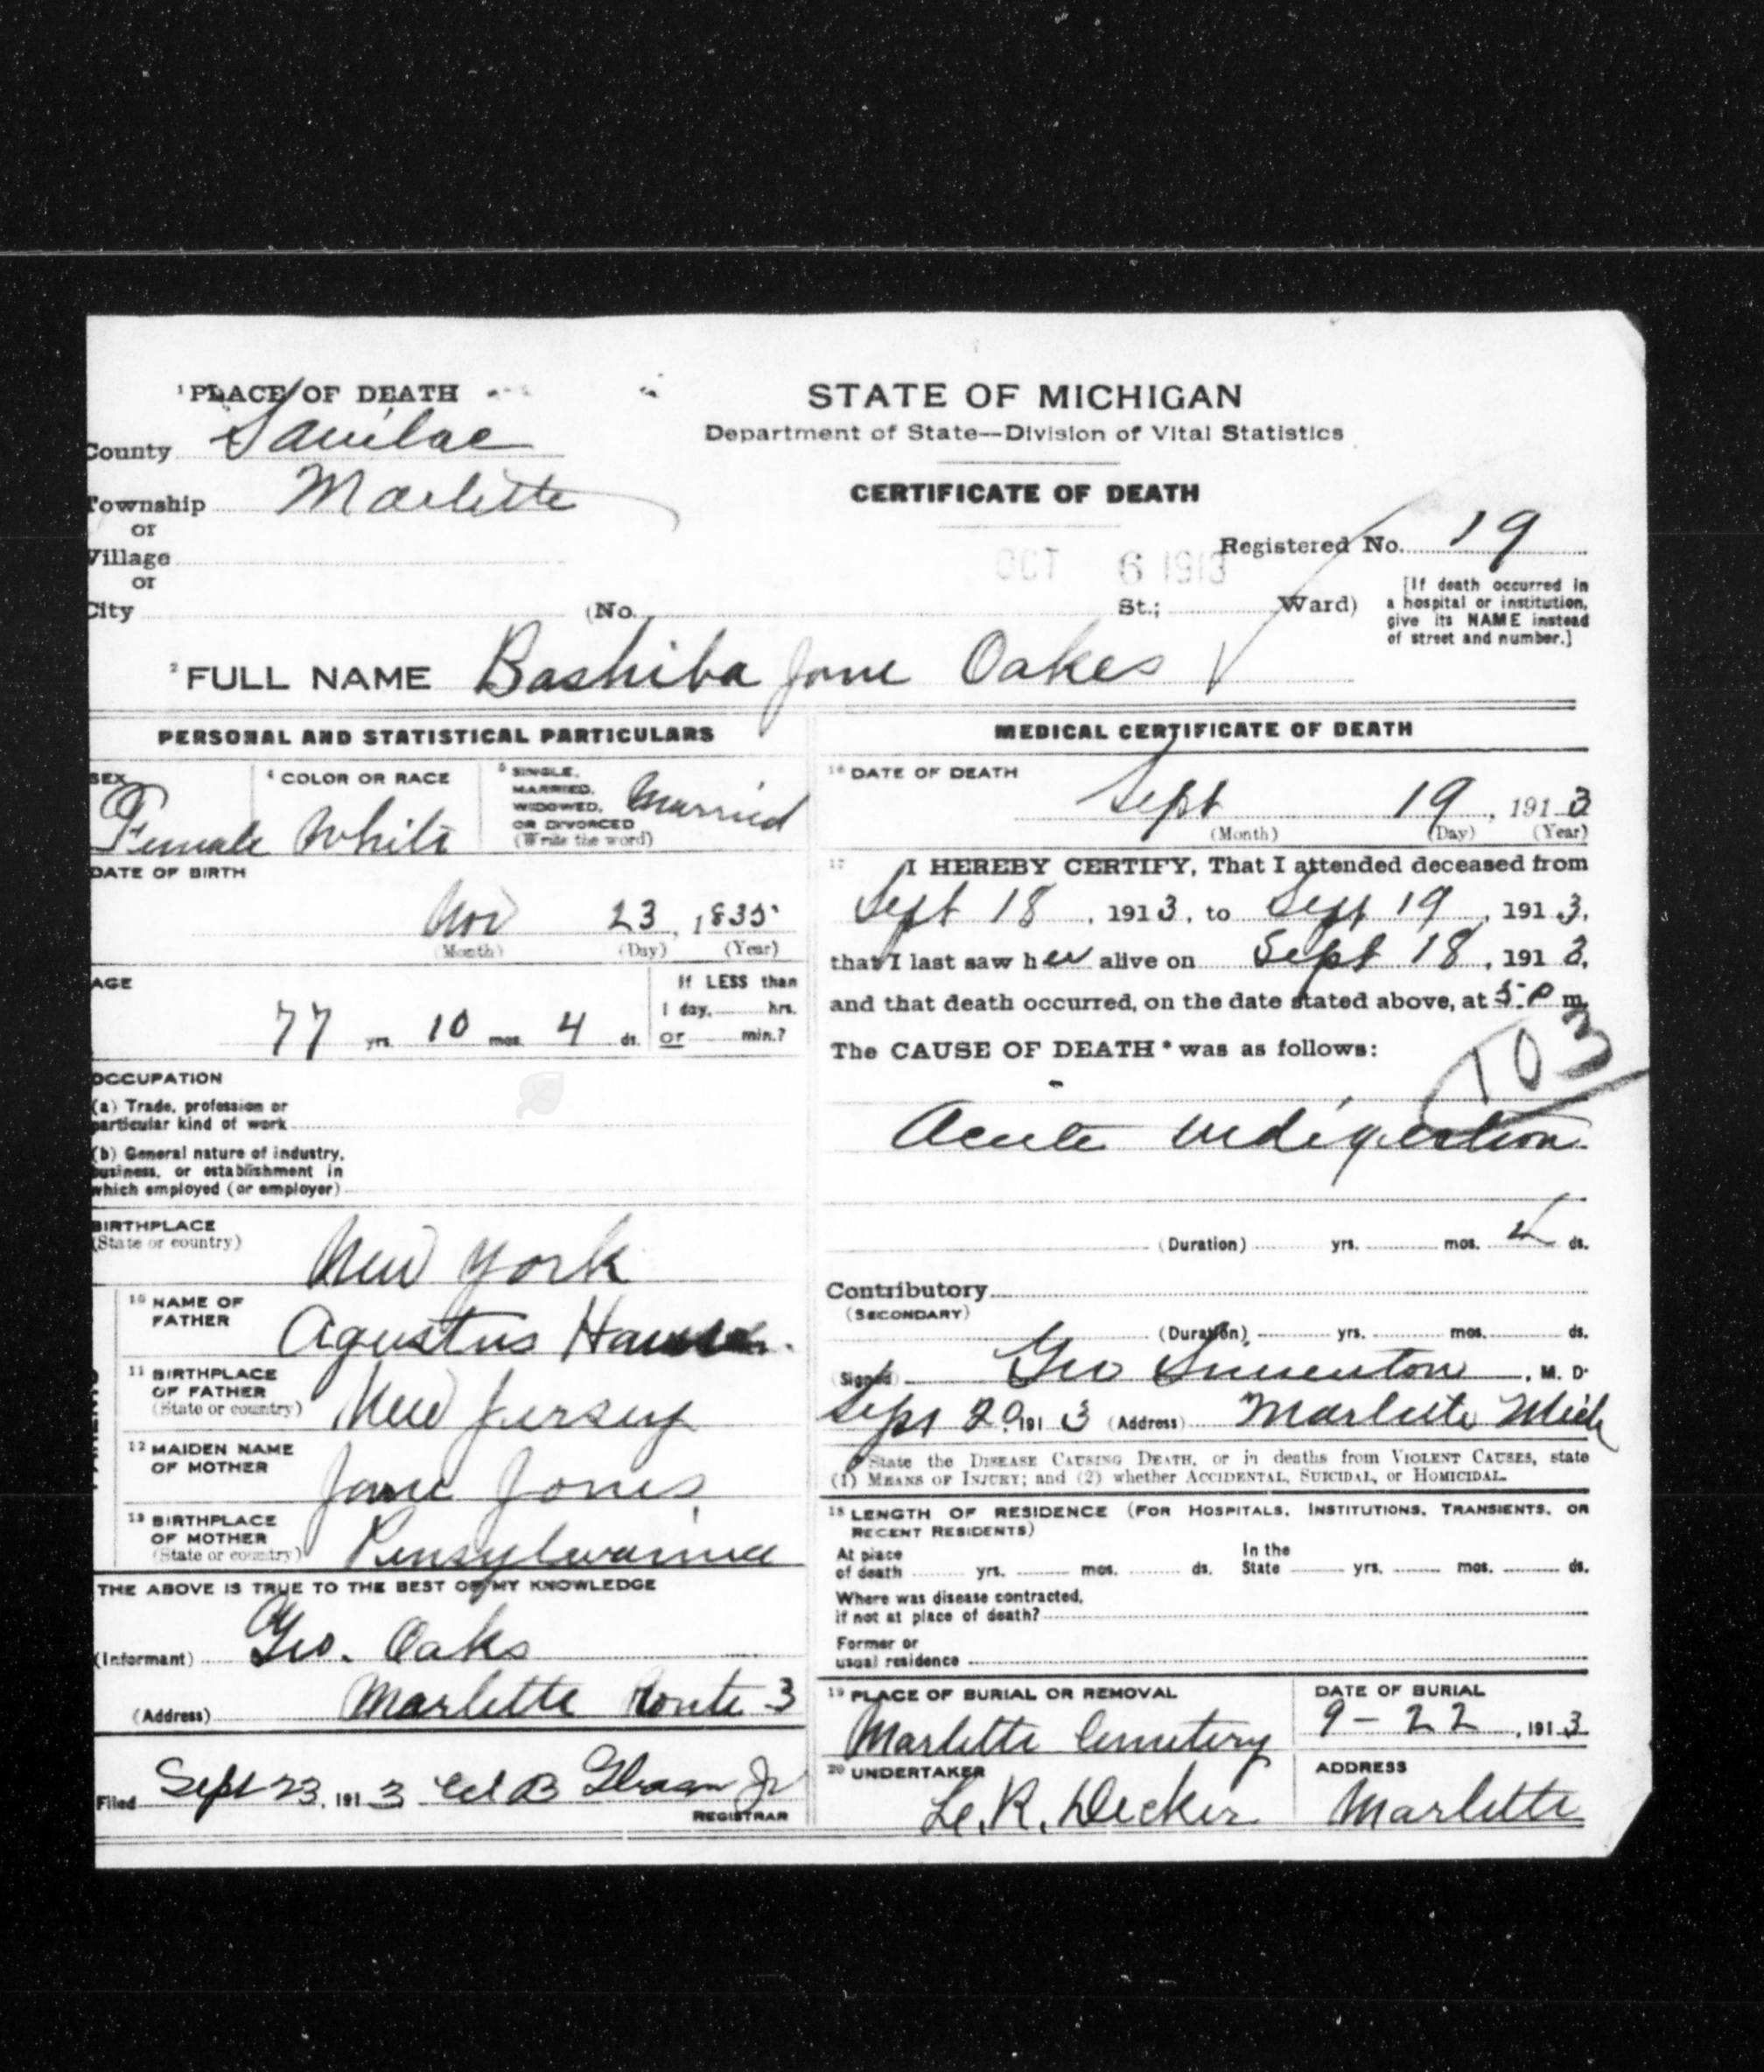 ¹PLACE OF DEATH
County Sanilac
Township Marlette
or
Village
or
City (No. St.; Ward)
STATE OF MICHIGAN
Department of State—Division of Vital Statistics
CERTIFICATE OF DEATH
Registered No. 19
OCT 6 1913
[If death occurred in
a hospital or institution,
give its NAME instead
of street and number.]
²FULL NAME Bashiba Jane Oakes
PERSONAL AND STATISTICAL PARTICULARS
SEX
Female
⁴ COLOR OR RACE
White
⁵ SINGLE,
MARRIED,
WIDOWED,
OR DIVORCED
(Write the word)
Married
DATE OF BIRTH
Nov 23, 1835
(Month) (Day) (Year)
AGE
77 yrs. 10 mos. 4 ds.
If LESS than
1 day, hrs.
or min.?
OCCUPATION
(a) Trade, profession or
particular kind of work
(b) General nature of industry,
business, or establishment in
which employed (or employer)
BIRTHPLACE
(State or country)
New York
PARENTS
¹⁰ NAME OF
FATHER
Agustus
¹¹ BIRTHPLACE
OF FATHER
(State or country)
New Jersey
¹² MAIDEN NAME
OF MOTHER
Jane Jones
¹³ BIRTHPLACE
OF MOTHER
(State or country)
Pensylvannia
THE ABOVE IS TRUE TO THE BEST OF MY KNOWLEDGE
(Informant) Geo. Oaks
(Address) Marlette Route 3
Filed Sept 23, 1913 B Jr
REGISTRAR
MEDICAL CERTIFICATE OF DEATH
¹⁶ DATE OF DEATH
Sept 19, 1913
(Month) (Day) (Year)
¹⁷ I HEREBY CERTIFY, That I attended deceased from
Sept 18, 1913, to Sept 19, 1913,
that I last saw her alive on Sept 18, 1913,
and that death occurred, on the date stated above, at 5 P m.
The CAUSE OF DEATH* was as follows:
103
Acute indigestion
(Duration) yrs. mos. ds.
Contributory
(SECONDARY)
(Duration) yrs. mos. ds.
(Signed) Geo Simenton, M. D.
Sept 20, 1913 (Address) Marlette Mich
*State the DISEASE CAUSING DEATH, or in deaths from VIOLENT CAUSES, state
(1) MEANS OF INJURY; and (2) whether ACCIDENTAL, SUICIDAL, or HOMICIDAL.
¹⁸ LENGTH OF RESIDENCE (FOR HOSPITALS, INSTITUTIONS, TRANSIENTS, OR
RECENT RESIDENTS)
At place
of death yrs. mos. ds.
In the
State yrs. mos. ds.
Where was disease contracted,
if not at place of death?
Former or
usual residence
¹⁹ PLACE OF BURIAL OR REMOVAL
Marlette Cemetery
DATE OF BURIAL
9-22, 1913
²⁰ UNDERTAKER
R. Decker
ADDRESS
Marlette